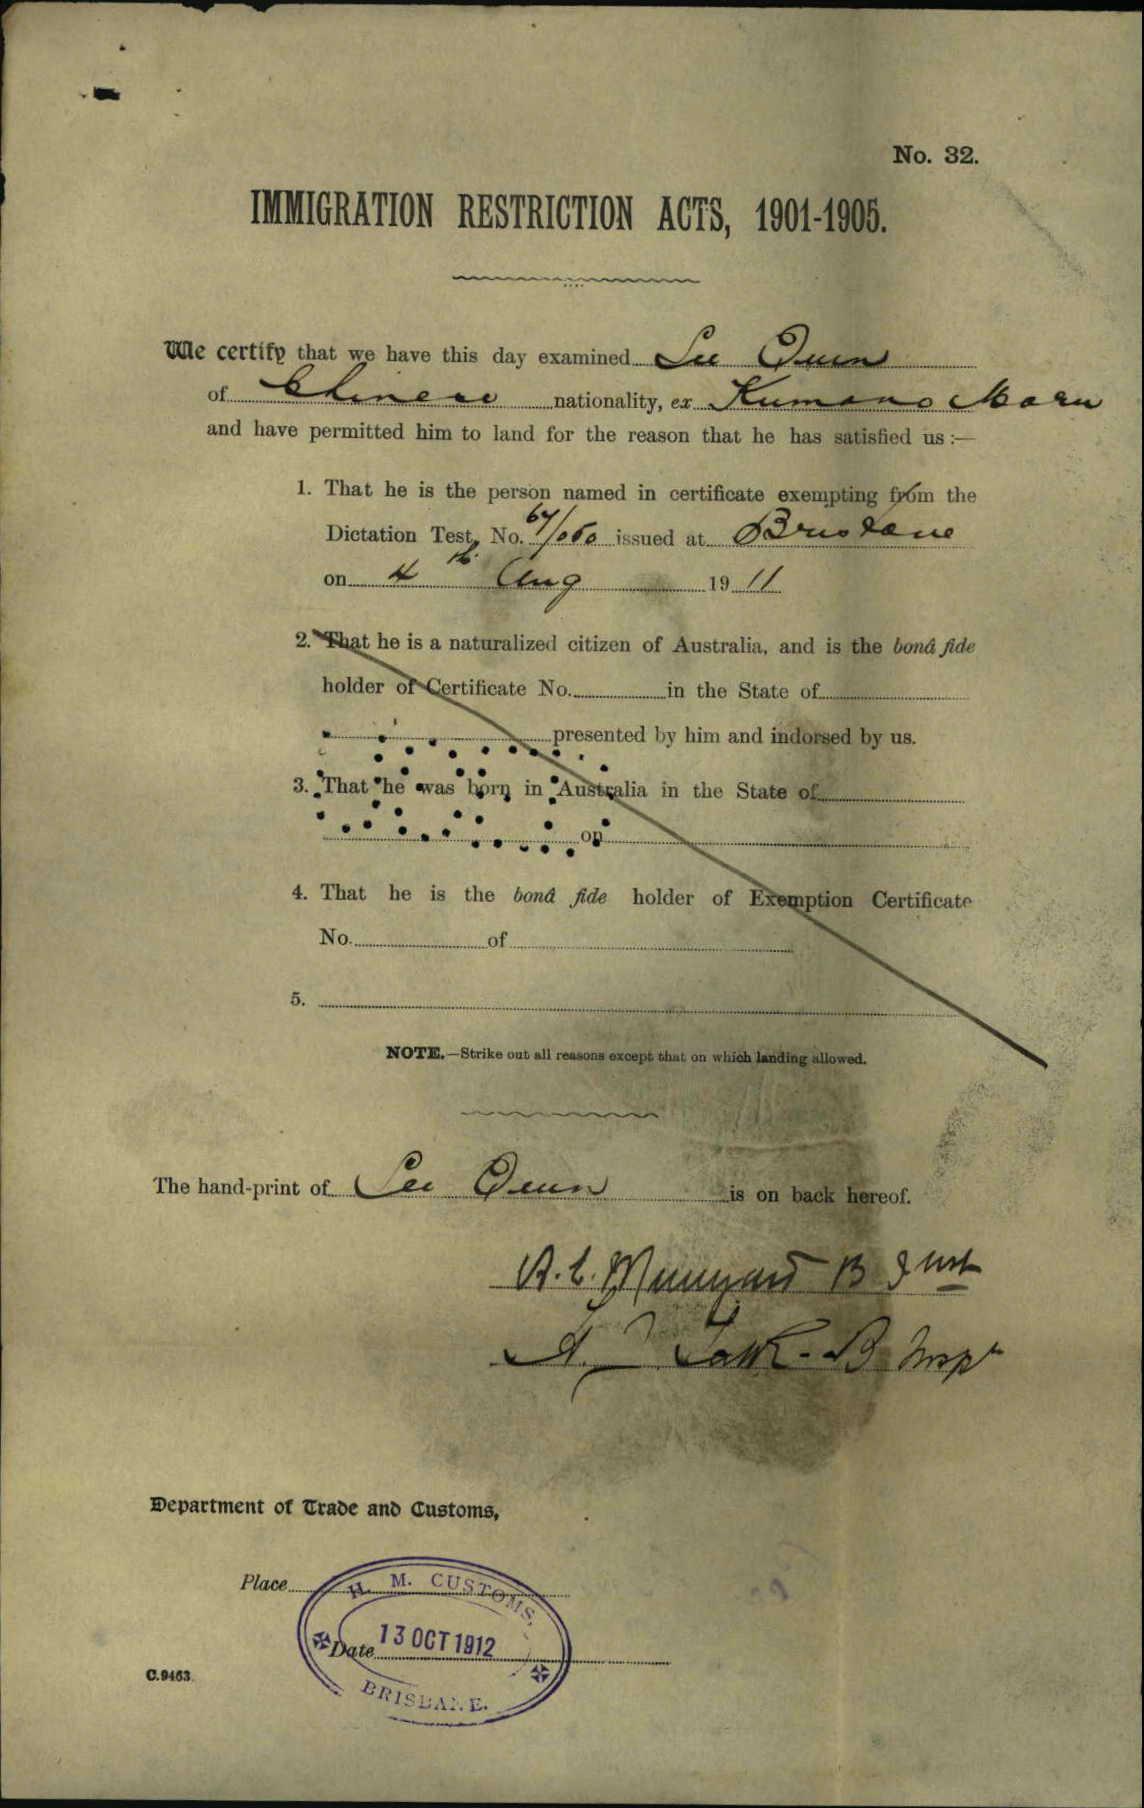 No. 32.
IMMIGRATION RESTRICTION ACTS, 1901-1905.
We certify that we have this day examined Lee Quen
of Chinese nationality, ex Kumano Maru
and have permitted him to land for the reason that he has satisfied us :—
1. That he is the person named in certificate exempting from the
Dictation Test, No. issued at Brisbane
on 4th Aug 1911
2. That he is a naturalized citizen of Australia, and is the bonâ fide
holder of Certificate No. in the State of
presented by him and indorsed by us.
3. That he was born in Australia in the State of
on
4. That he is the bonâ fide holder of Exemption Certificate
No. of
5.
NOTE.—Strike out all reasons except that on which landing allowed.
The hand-print of Lee Quen is on back hereof.
Department of Trade and Customs,
Place
H. M. CUSTOMS,
Date 13 OCT 1912
BRISBANE.
C.9463.